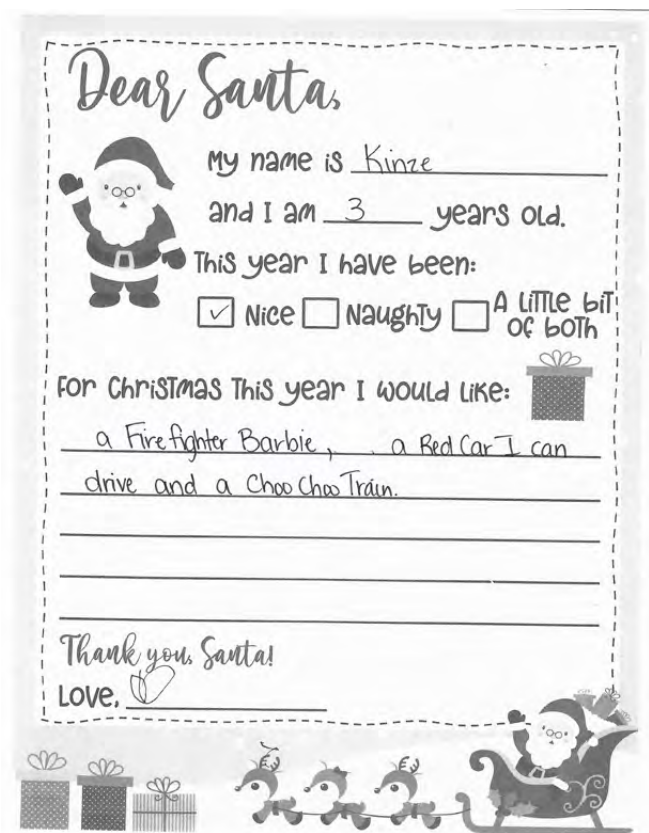 Dear Santa,
My name is Kinze
and I am 3 years old.
This year I have been:
Nice Naughty A little bit of both
For Christmas this year I would like:
a Firefighter Barbie, a Red Car I can
drive and a Choo Choo Train.
Thank you, Santa!
Love,